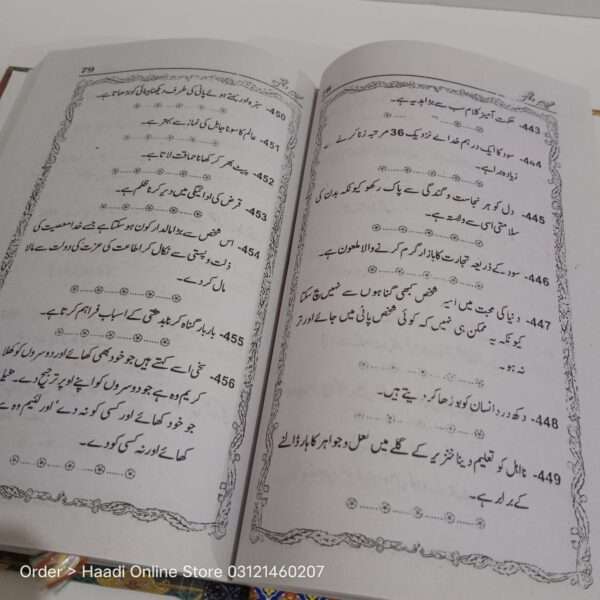 443- حکمت آمیز کلام سب سے بڑا ہدیہ ہے۔
444- سود کا ایک درہم خدا کے نزدیک 36 مرتبہ زنا کرنے سے
زیادہ برا ہے۔
445- دل کو ہر نجاست و گندگی سے پاک رکھو کیونکہ بدن کی
سلامتی اسی سے وابستہ ہے۔
446- سود کے ذریعہ تجارت کا بازار گرم کرنے والا ملعون ہے۔
447- دنیا کی محبت میں اسیر شخص کبھی گناہوں سے نہیں بچ سکتا
کیونکہ یہ ممکن ہی نہیں کہ کوئی شخص پانی میں جائے اور تر
نہ ہو۔
448- دکھ درد انسان کو بوڑھا کر دیتے ہیں۔
449- نااہل کو تعلیم دینا خنزیر کے گلے میں لعل و جواہر کا ہار ڈالنے
کے برابر ہے۔
79
450- سبزہ اور بہتے ہوئے پانی کی طرف دیکھنا بینائی کو بڑھاتا ہے۔
451- عالم کا سونا جاہل کی نماز سے بہتر ہے۔
452- پیٹ بھر کر کھانا حماقت لاتا ہے۔
453- قرض کی ادائیگی میں دیر کرنا ظلم ہے۔
454- اس شخص سے بڑا مالدار کون ہو سکتا ہے جسے خدا معصیت کی
ذلت و پستی سے نکال کر اطاعت کی عزت کی دولت سے مالا
مال کر دے۔
455- بار بار گناہ کرنا بدبختی کے اسباب فراہم کرتا ہے۔
456- سخی اسے کہتے ہیں جو خود بھی کھائے اور دوسروں کو کھلائے
کریم وہ ہے جو دوسروں کو اپنے اوپر ترجیح دے۔
جو خود کھائے اور کسی کو نہ دے' اور لئیم وہ ہے
کھائے اور نہ کسی کو دے۔
Order > Haadi Online Store 03121460207